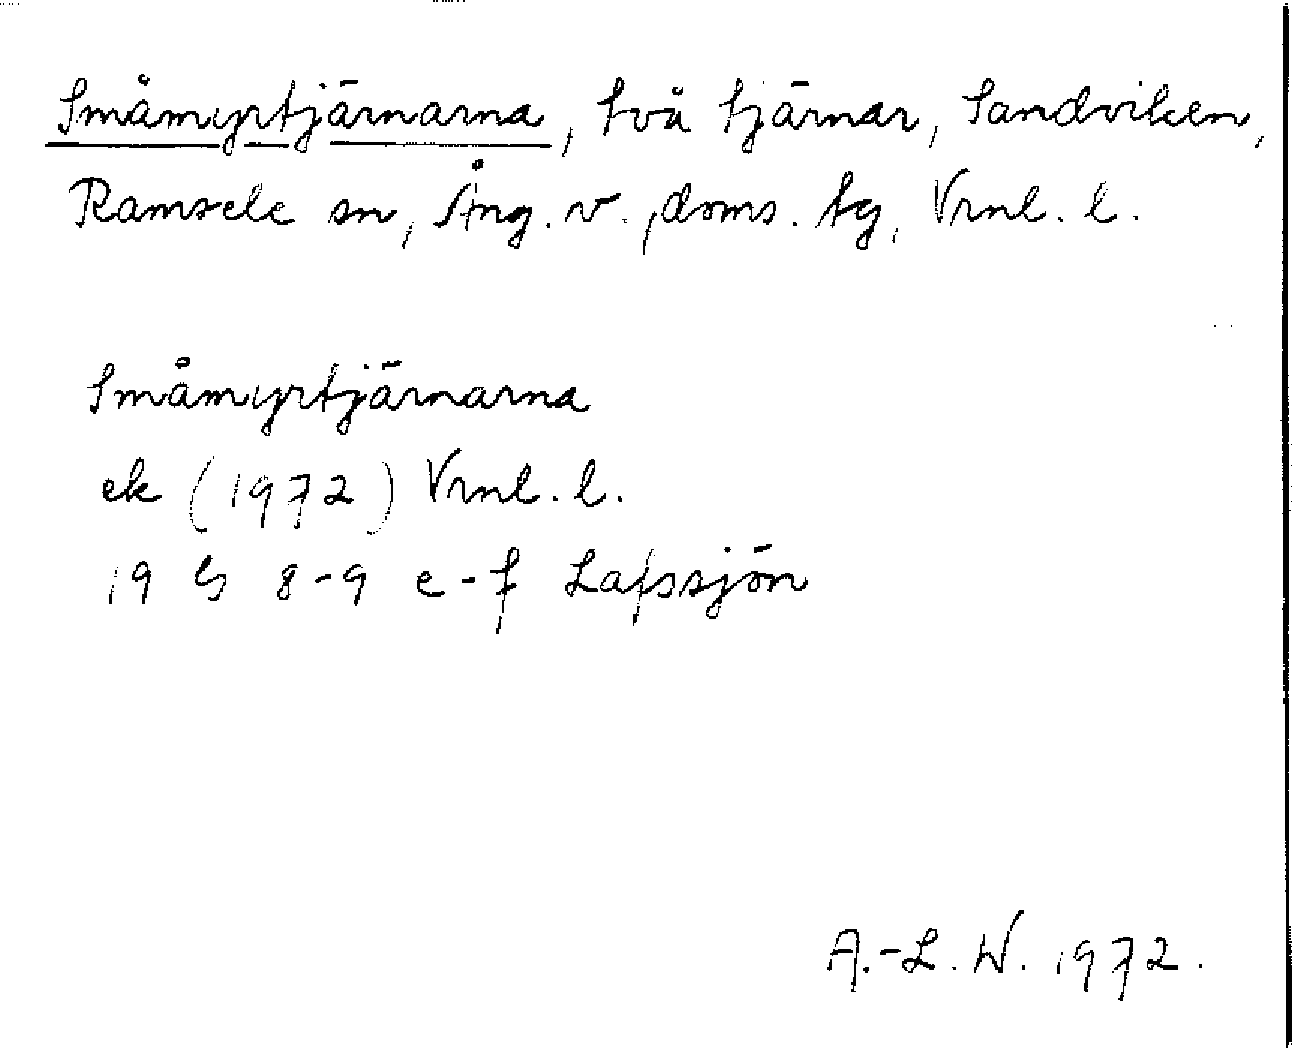 Småmyrtjärnarna, två tjärnar, Sandviken,
Ramsele sn, Ång. v., doms. tg, Vrnl. l.
Småmyrtjärnarna
ek (1972) Vrnl. l.
19 G 8-9 e-f Lafssjön
A.-L. W. 1972.